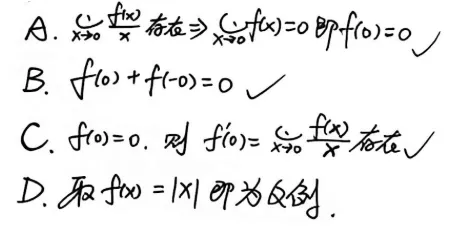 A. lim x→0 f(x)/x 存在 ⇒ lim x→0 f(x)=0 即 f(0)=0 ✓
B. f(0)+f(-0)=0 ✓
C. f(0)=0. 则 f'(0)= lim x→0 f(x)/x 存在 ✓
D. 取 f(x) = |x| 即为反例.